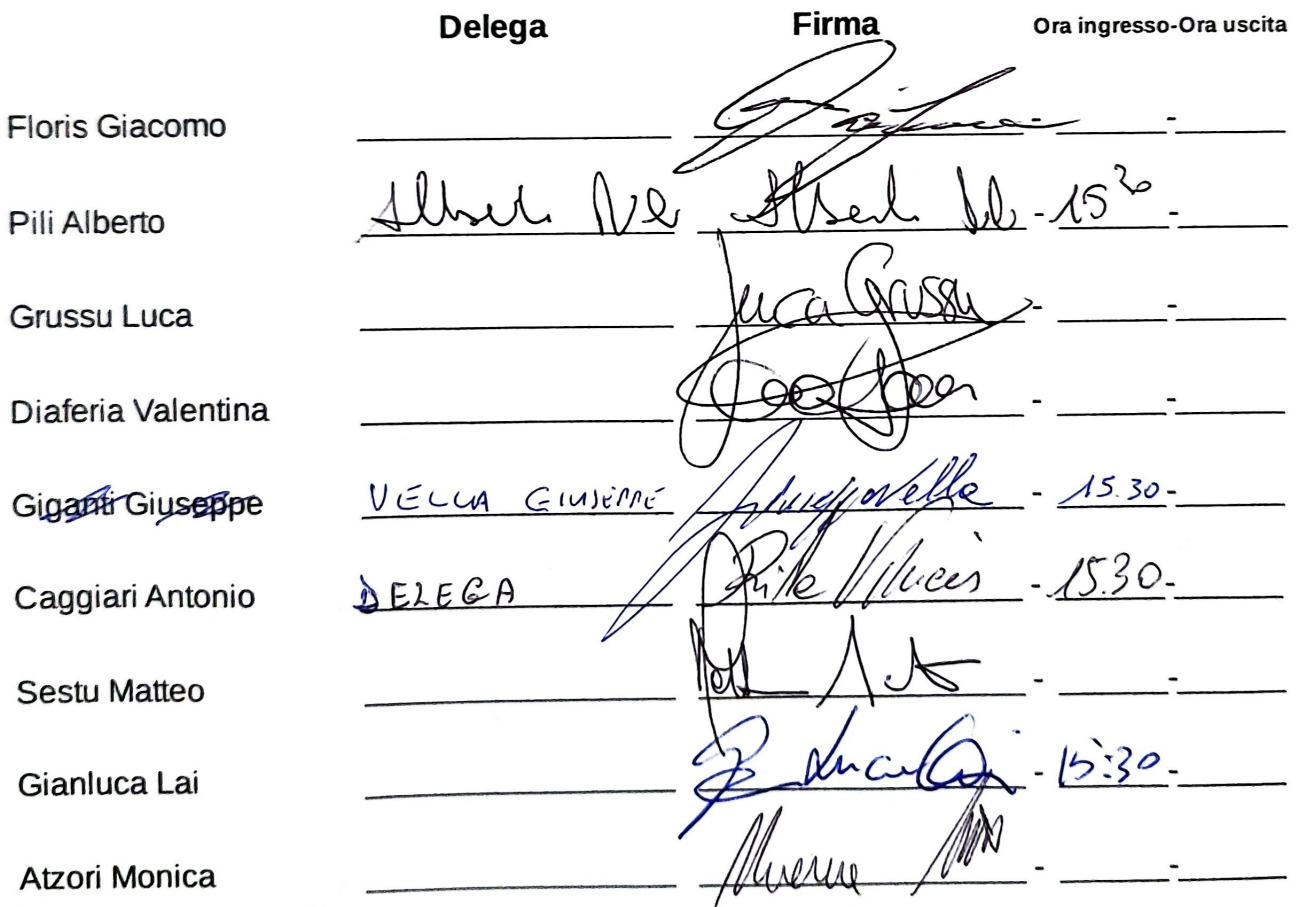 Delega Firma Ora ingresso-Ora uscita
Floris Giacomo
Pili Alberto Alberto Alberto 15 30
Grussu Luca Luca Grussu
Diaferia Valentina
Giganti Giuseppe VELLA GIUSEPPE Giuseppe Vella 15.30
Caggiari Antonio DELEGA 15.30
Sestu Matteo
Gianluca Lai 15:30
Atzori Monica